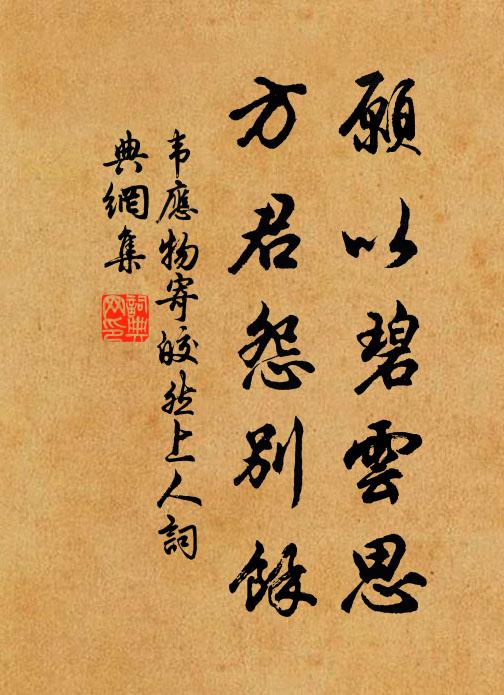 願以碧雲思
方君怨別餘
韦應物寄皎然上人詞
典網集
詞典網印